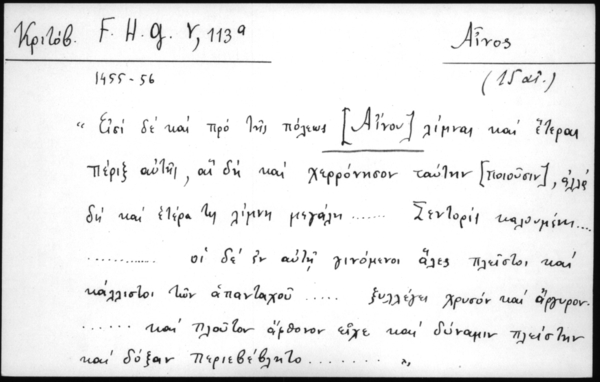 Κριτόβ. F. H. G. V, 113ª
Αἶνος
1455-56
(15 αἰ.)
" Εἰσί δέ καί πρό τῆς πόλεως [Αἴνου] λίμναι καί ἕτεραι
πέριξ αὐτῆς, αἵ δή καί χερρόνησον ταύτην [ποιοῦσιν], ἀλλά
δή καί ἑτέρα τις λίμνη μεγάλη ....... Σεντορίς καλουμένη....
............. οἱ δέ ἐν αὐτῇ γινόμενοι ἅλες πλεῖστοι καί
κάλλιστοι τῶν ἁπανταχοῦ ..... ξυλλέγει χρυσόν καί ἄργυρον.
...... καί πλοῦτον ἄφθονον εἶχε καί δύναμιν πλείστην
καί δόξαν περιεβέβλητο ........ "